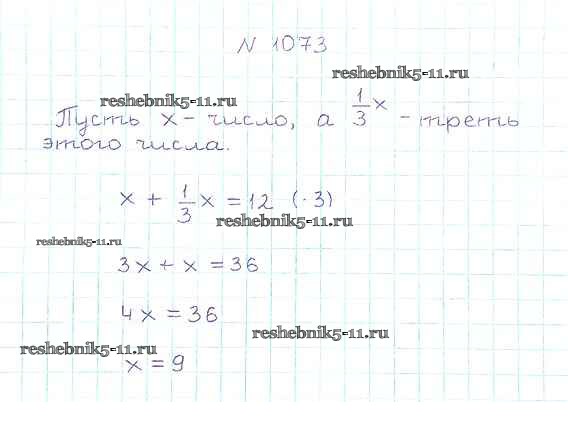 N 1073
reshebnik5-11.ru
reshebnik5-11.ru
Пусть x - число, а 1/3 x - треть
этого числа.
x + 1/3 x = 12 (·3)
reshebnik5-11.ru
reshebnik5-11.ru
3x + x = 36
4x = 36
reshebnik5-11.ru
reshebnik5-11.ru
x = 9